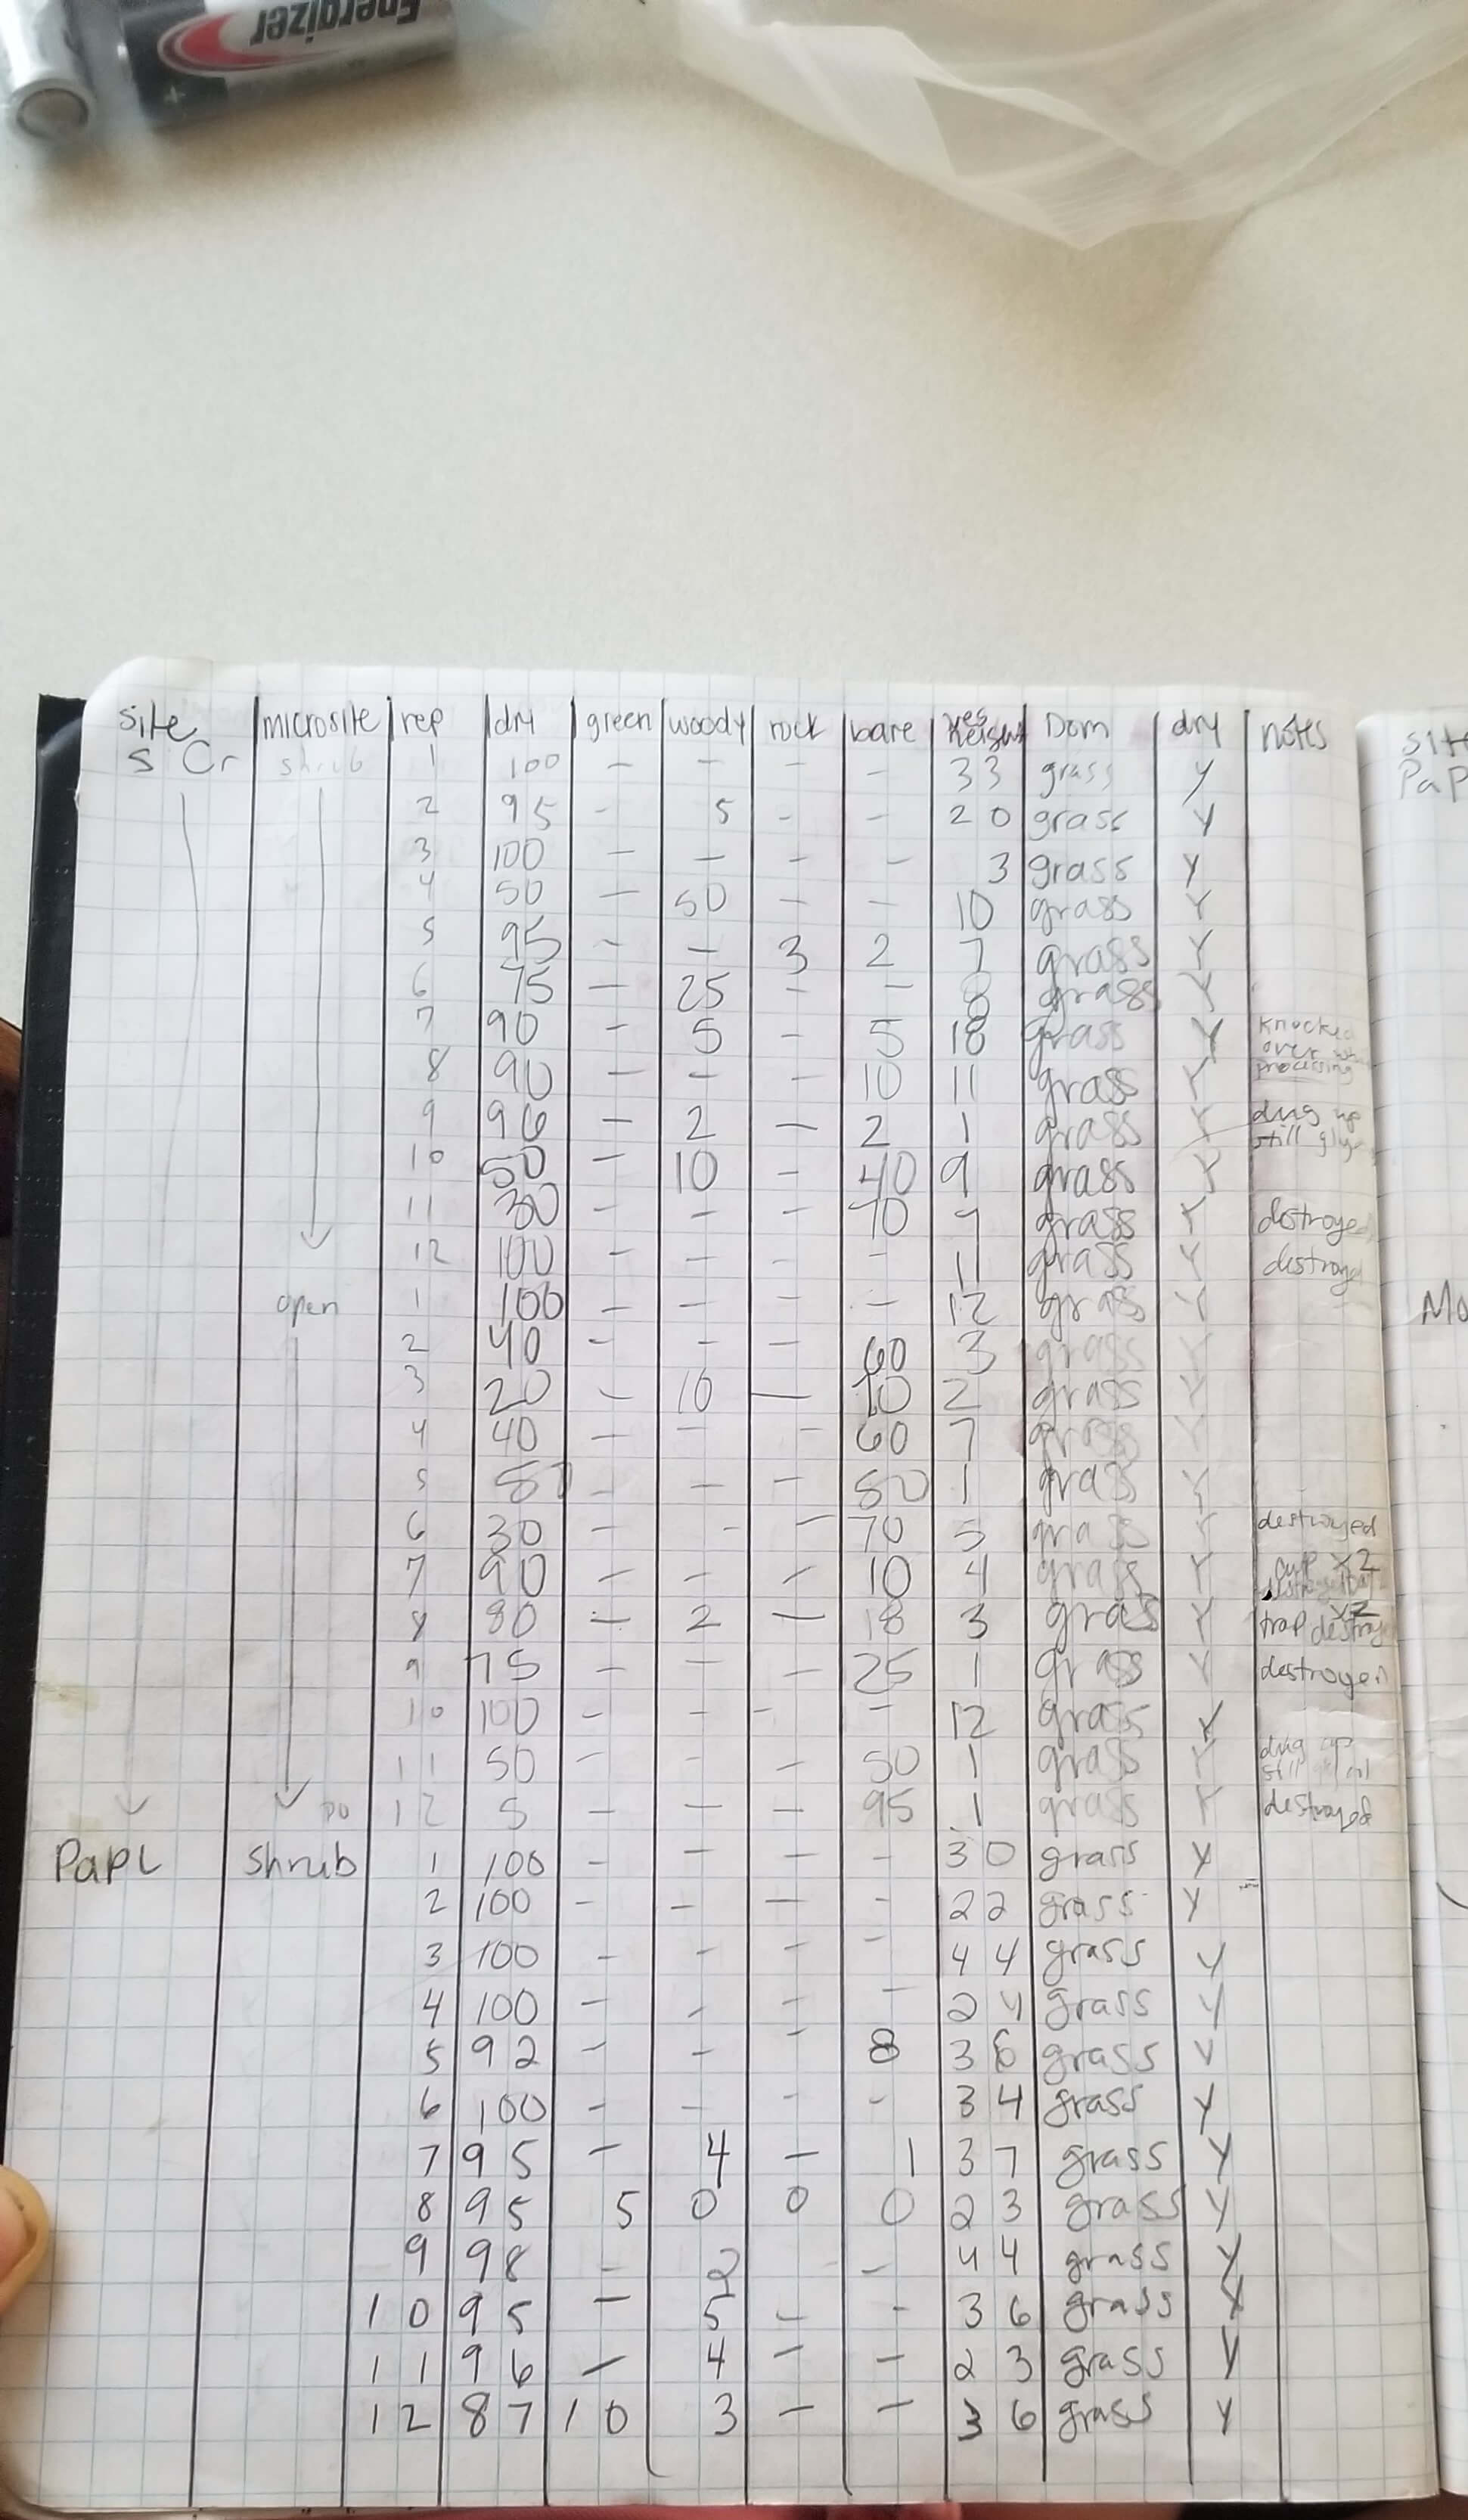 Energizer
+
site microsite rep dry green woody rock bare veg height Dom dry notes
S Cr shrub 1 100 - - - - 33 grass y
2 95 - 5 - - 20 grass y
3 100 - - - - 3 grass y
4 50 - 50 - - 10 grass Y
5 95 - - 3 2 7 grass Y
6 75 - 25 - - 8 grass Y
7 90 - 5 - 5 18 grass Y knocked over processing
8 90 - - - 10 11 grass Y
9 96 - 2 - 2 1 grass Y dug up still
10 50 - 10 - 40 9 grass Y
11 30 - - - 70 grass Y destroyed
12 100 - - - - 11 grass Y destroyed
open 1 100 - - - - 12 grass Y
2 40 - - - 60 3 grass Y
3 20 - 10 - 70 2 grass Y
4 40 - - - 60 7 grass Y
5 50 - - - 50 1 grass Y
6 30 - - - 70 5 grass Y destroyed
7 90 - - - 10 4 grass Y cup x2
8 80 - 2 - 18 3 grass Y trap destroy x2
9 75 - - - 25 1 grass Y destroyed
10 100 - - - - 12 grass Y
11 50 - - - 50 1 grass Y dug up still
12 5 - - - 95 1 grass Y destroyed
PaPL shrub 1 100 - - - - 30 grass y
2 100 - - - - 22 grass y
3 100 - - - - 44 grass y
4 100 - - - - 24 grass y
5 92 - - - 8 36 grass y
6 100 - - - - 34 grass y
7 95 - 4 - 1 37 grass y
8 95 5 0 0 0 23 grass y
9 98 - 2 - 44 grass y
10 95 - 5 - - 36 grass y
11 96 - 4 - - 23 grass y
12 87 10 3 - - 36 grass y
site
PaP
Mo